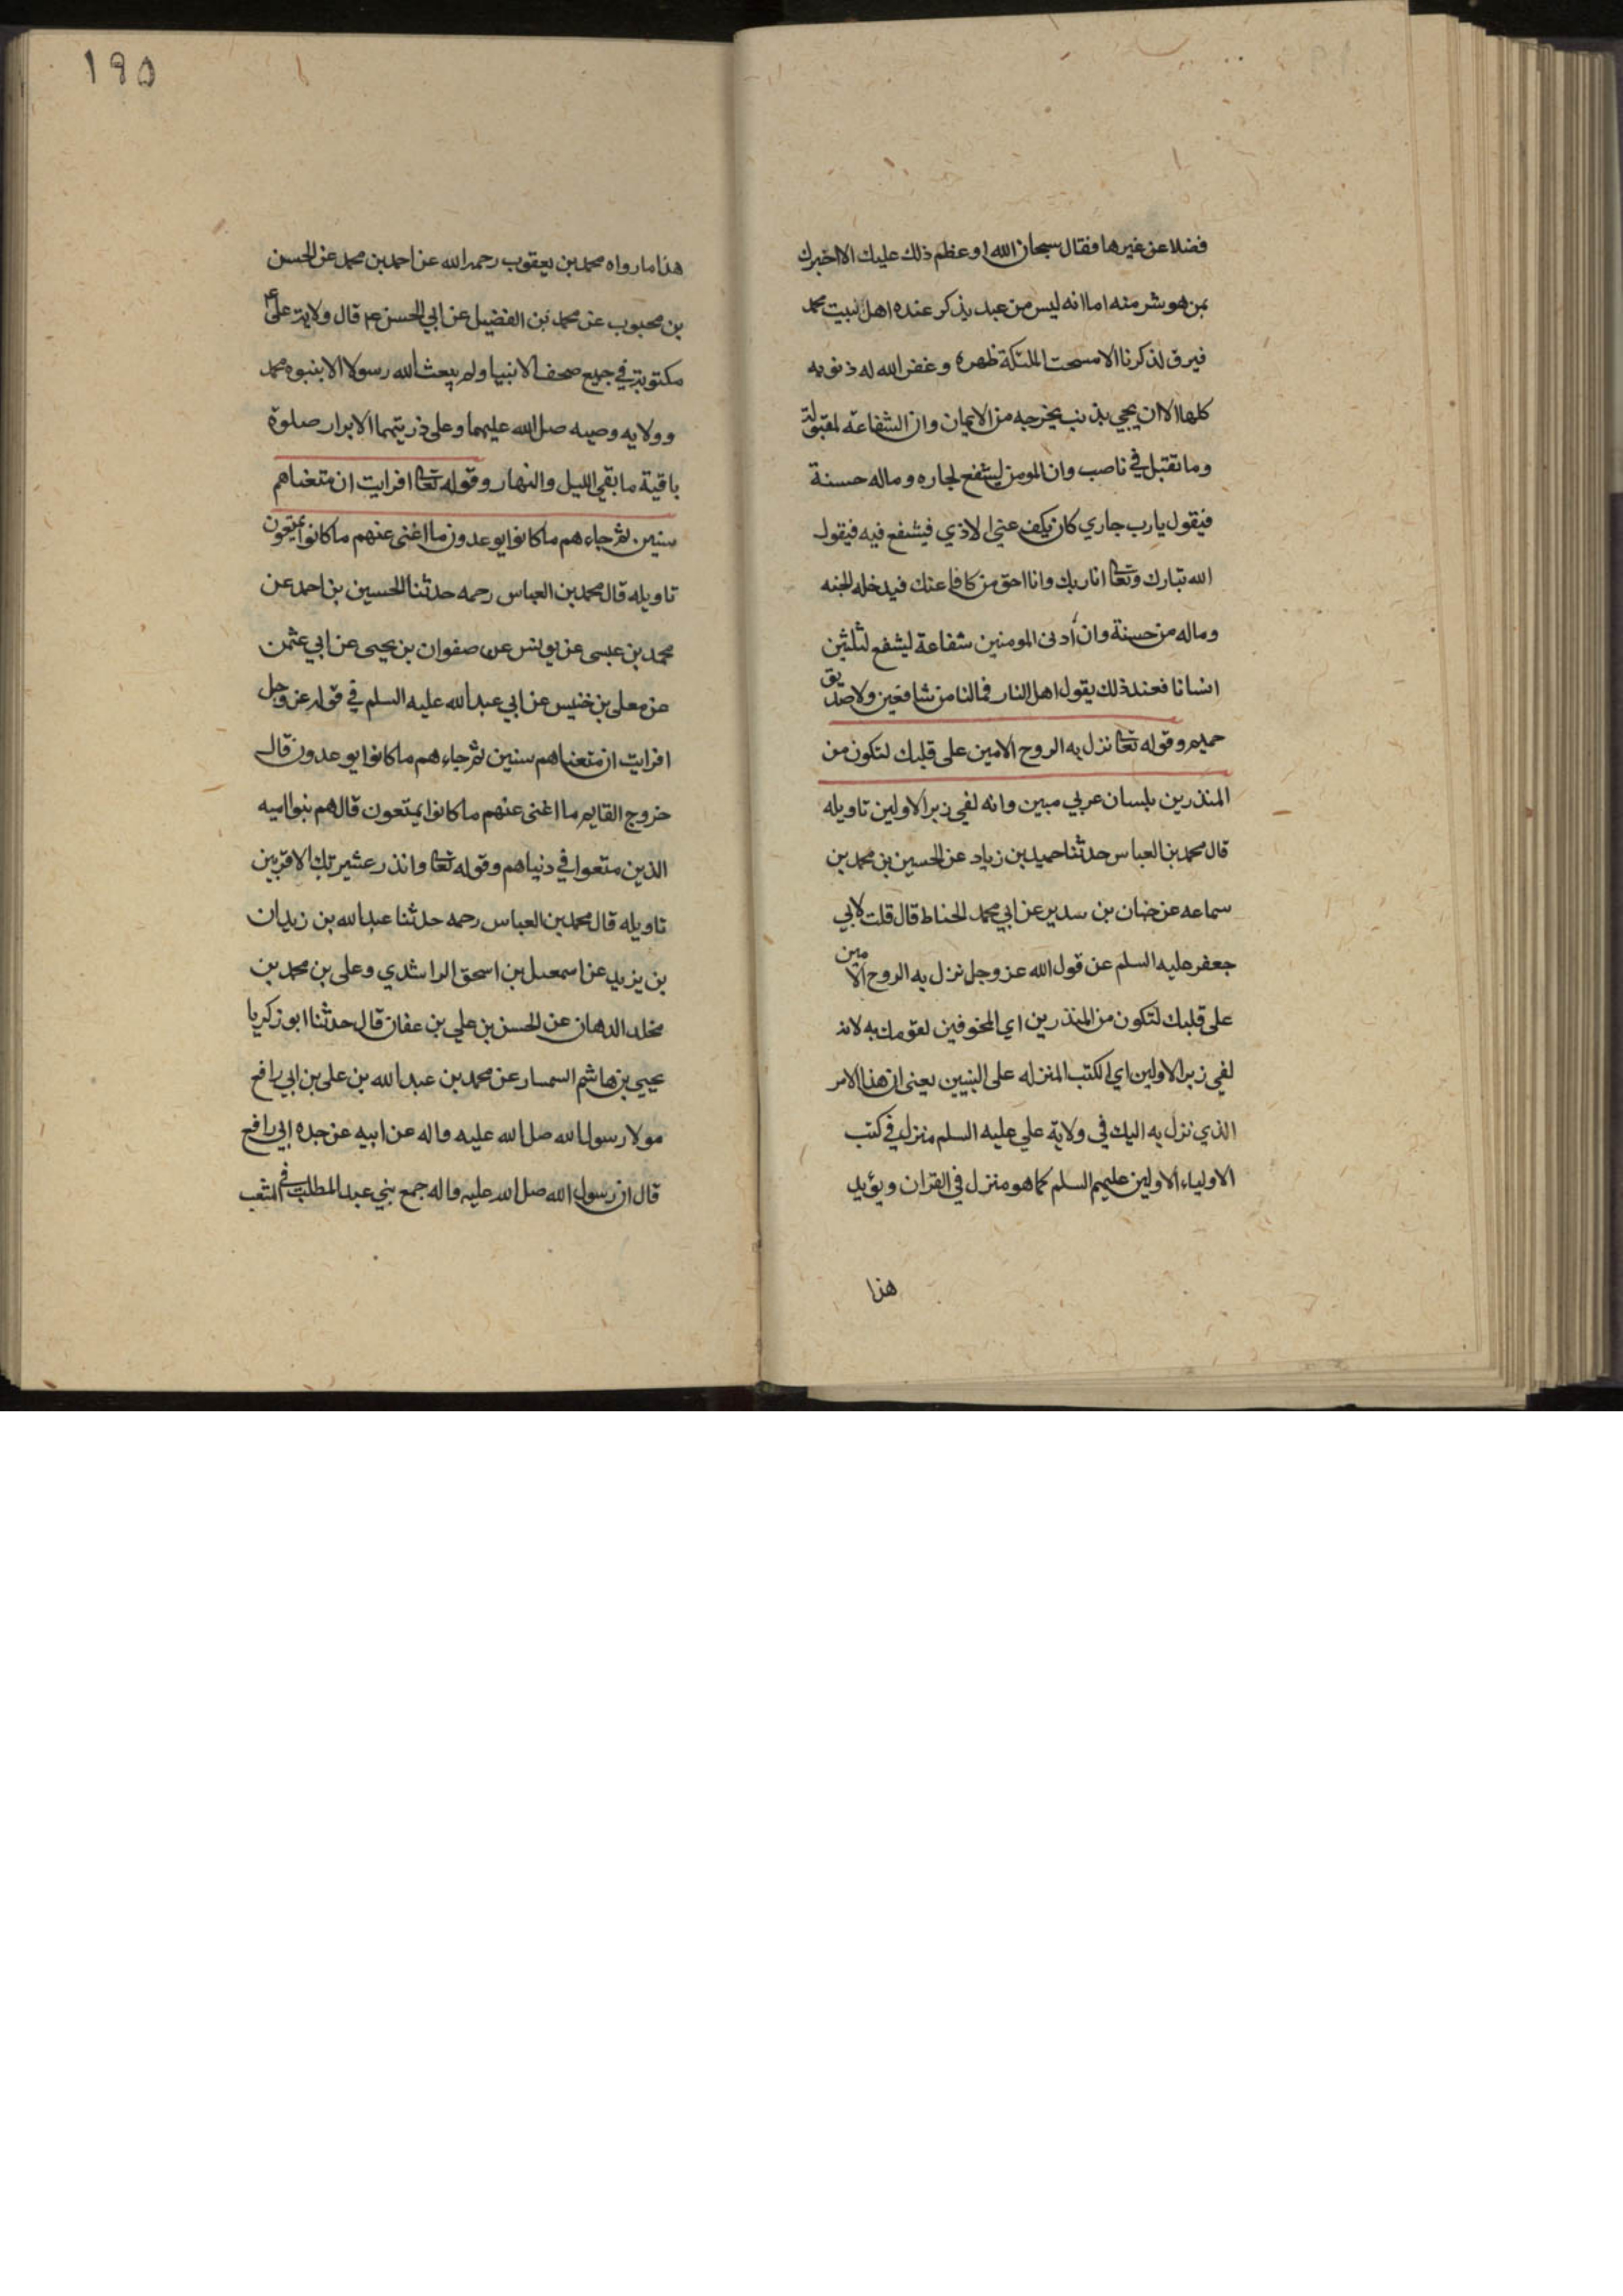 فضلا عن غيرها فقال سبحان الله او عظم ذلك عليك الا اخبرك
بمن هو شر منه اما انه ليس من عبد يذكر عنده اهل لبيت محمد
فيرق لذكرنا الا مسحت الملئكة ظهره وغفر الله له ذنوبه
كلها الا ان يجي بذنب يخرجه من الايمان وان الشفاعة لمقبولة
وما تقبل في ناصب وان المومن ليشفع لجاره وماله حسنة
فيقول يا رب جاري كان يكف عني الاذي فيشفع فيه فيقول
الله تبارك وتعا انا ربك وانا احق من كافا عنك فيدخله الجنه
وماله من حسنة وان أدنى المومنين شفاعة ليشفع لثلثين
انسانا فعند ذلك يقول اهل النار فمالنا من شافعين ولا صديق
حميم وقوله تعا نزل به الروح الامين على قلبك لتكون من
المنذرين بلسان عربي مبين وانه لفي زبر الاولين تاويله
قال محمد بن العباس حدثنا حميد بن زياد عن الحسين بن محمد بن
سماعه عن حنان بن سدير عن ابي محمد الحناط قال قلت لابي
جعفر عليه السلم عن قول الله عز وجل نزل به الروح الامين
على قلبك لتكون من المنذرين اي المخوفين لقومك به لانه
لفي زبر الاولين اي الكتب المنزله على النبيين يعنى ان هذا الامر
الذي نزل به اليك في ولاية علي عليه السلم منزل في كتب
الاولياء الاولين عليهم السلم كما هو منزل في القران ويؤيد
هذا
١٩٥
هذا ما رواه محمد بن يعقوب رحمه الله عن احمد بن محمد عن الحسن
بن محبوب عن محمد بن الفضيل عن ابي الحسن ع قال ولاية علي ع
مكتوبة في جميع صحف الانبيا ولم يبعث الله رسولا الا بنبوه محمد
وولايه وصيه صل الله عليهما وعلى ذريتهما الابرار صلوة
باقية ما بقي الليل والنهار وقوله تعا افرايت ان متعناهم
سنين ثم جاءهم ما كانوا يوعدون ما اغنى عنهم ما كانوا يمتعون
تاويله قال محمد بن العباس رحمه حدثنا الحسين بن احمد عن
محمد بن عيسى عن يونس عن صفوان بن يحيى عن ابي عثمن
عن معلى بن خنيس عن ابي عبد الله عليه السلم في قوله عز وجل
افرايت ان متعناهم سنين ثم جاءهم ما كانوا يوعدون قال
خروج القايم ما اغنى عنهم ما كانوا يمتعون قال هم بنوا اميه
الذين متعوا في دنياهم وقوله تعا وانذر عشيرتك الاقربين
تاويله قال محمد بن العباس رحمه حدثنا عبد الله بن زيدان
بن يزيد عن اسمعيل بن اسحق الراشدي وعلى بن محمد بن
مخلد الدهان عن الحسن بن علي بن عفان قال حدثنا ابو زكريا
يحيي بن هاشم السمسار عن محمد بن عبد الله بن على بن ابي رافع
مولا رسول الله صل الله عليه واله عن ابيه عن جده ابي رافع
قال ان رسول الله صل الله عليه واله جمع بني عبد المطلب في الشعب